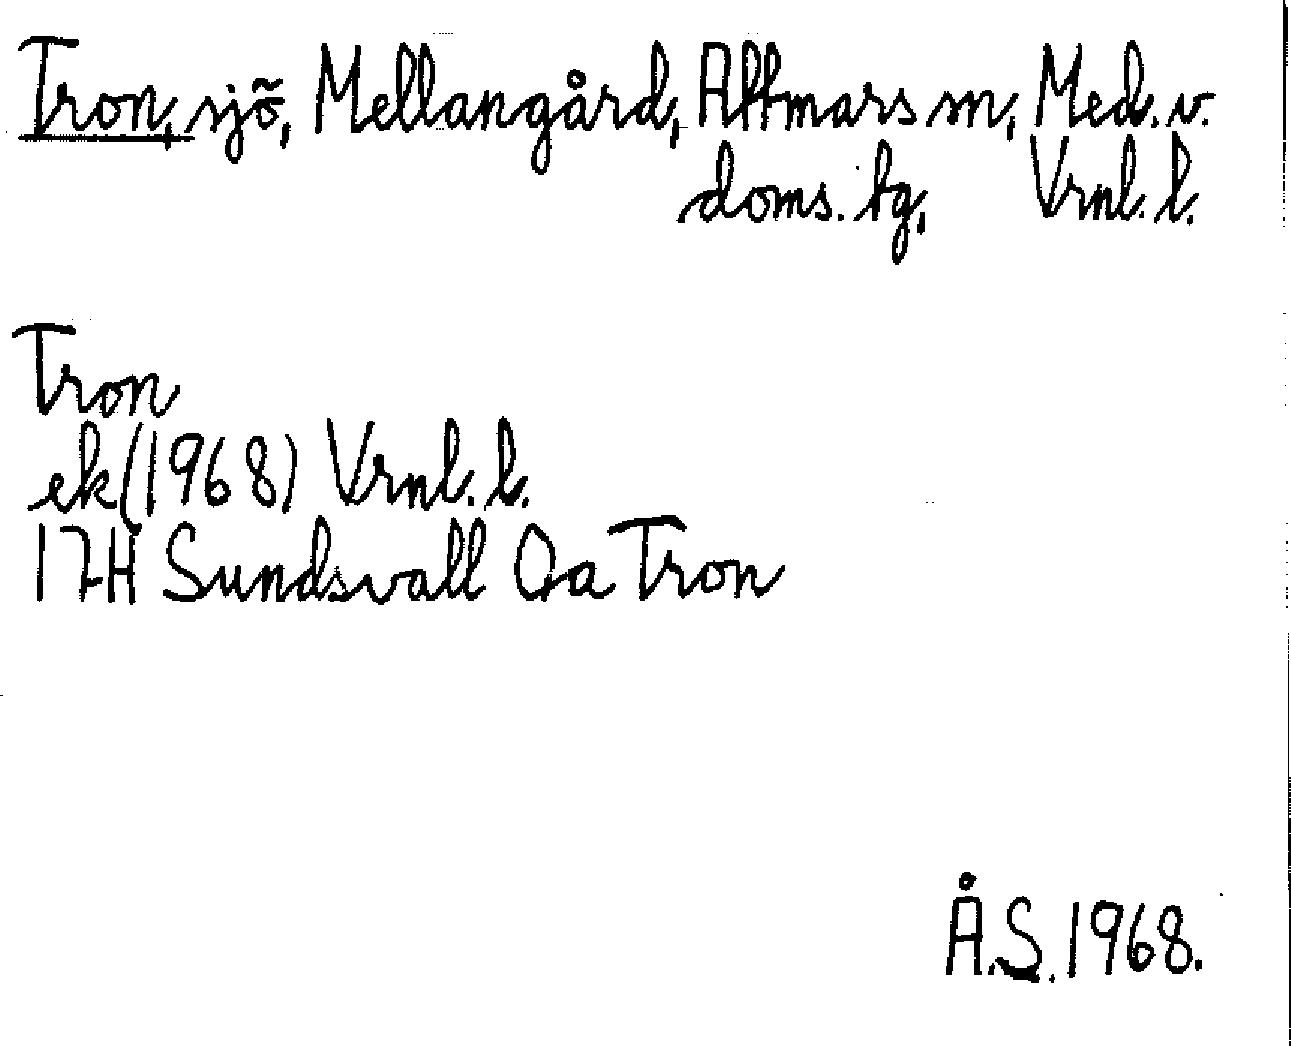 Tron, sjö, Mellangård, Attmars sn, Med. v.
doms. tg, Vrnl. l.
Tron
ek (1968) Vrnl. l.
17H Sundsvall Oa Tron
Å.S. 1968.